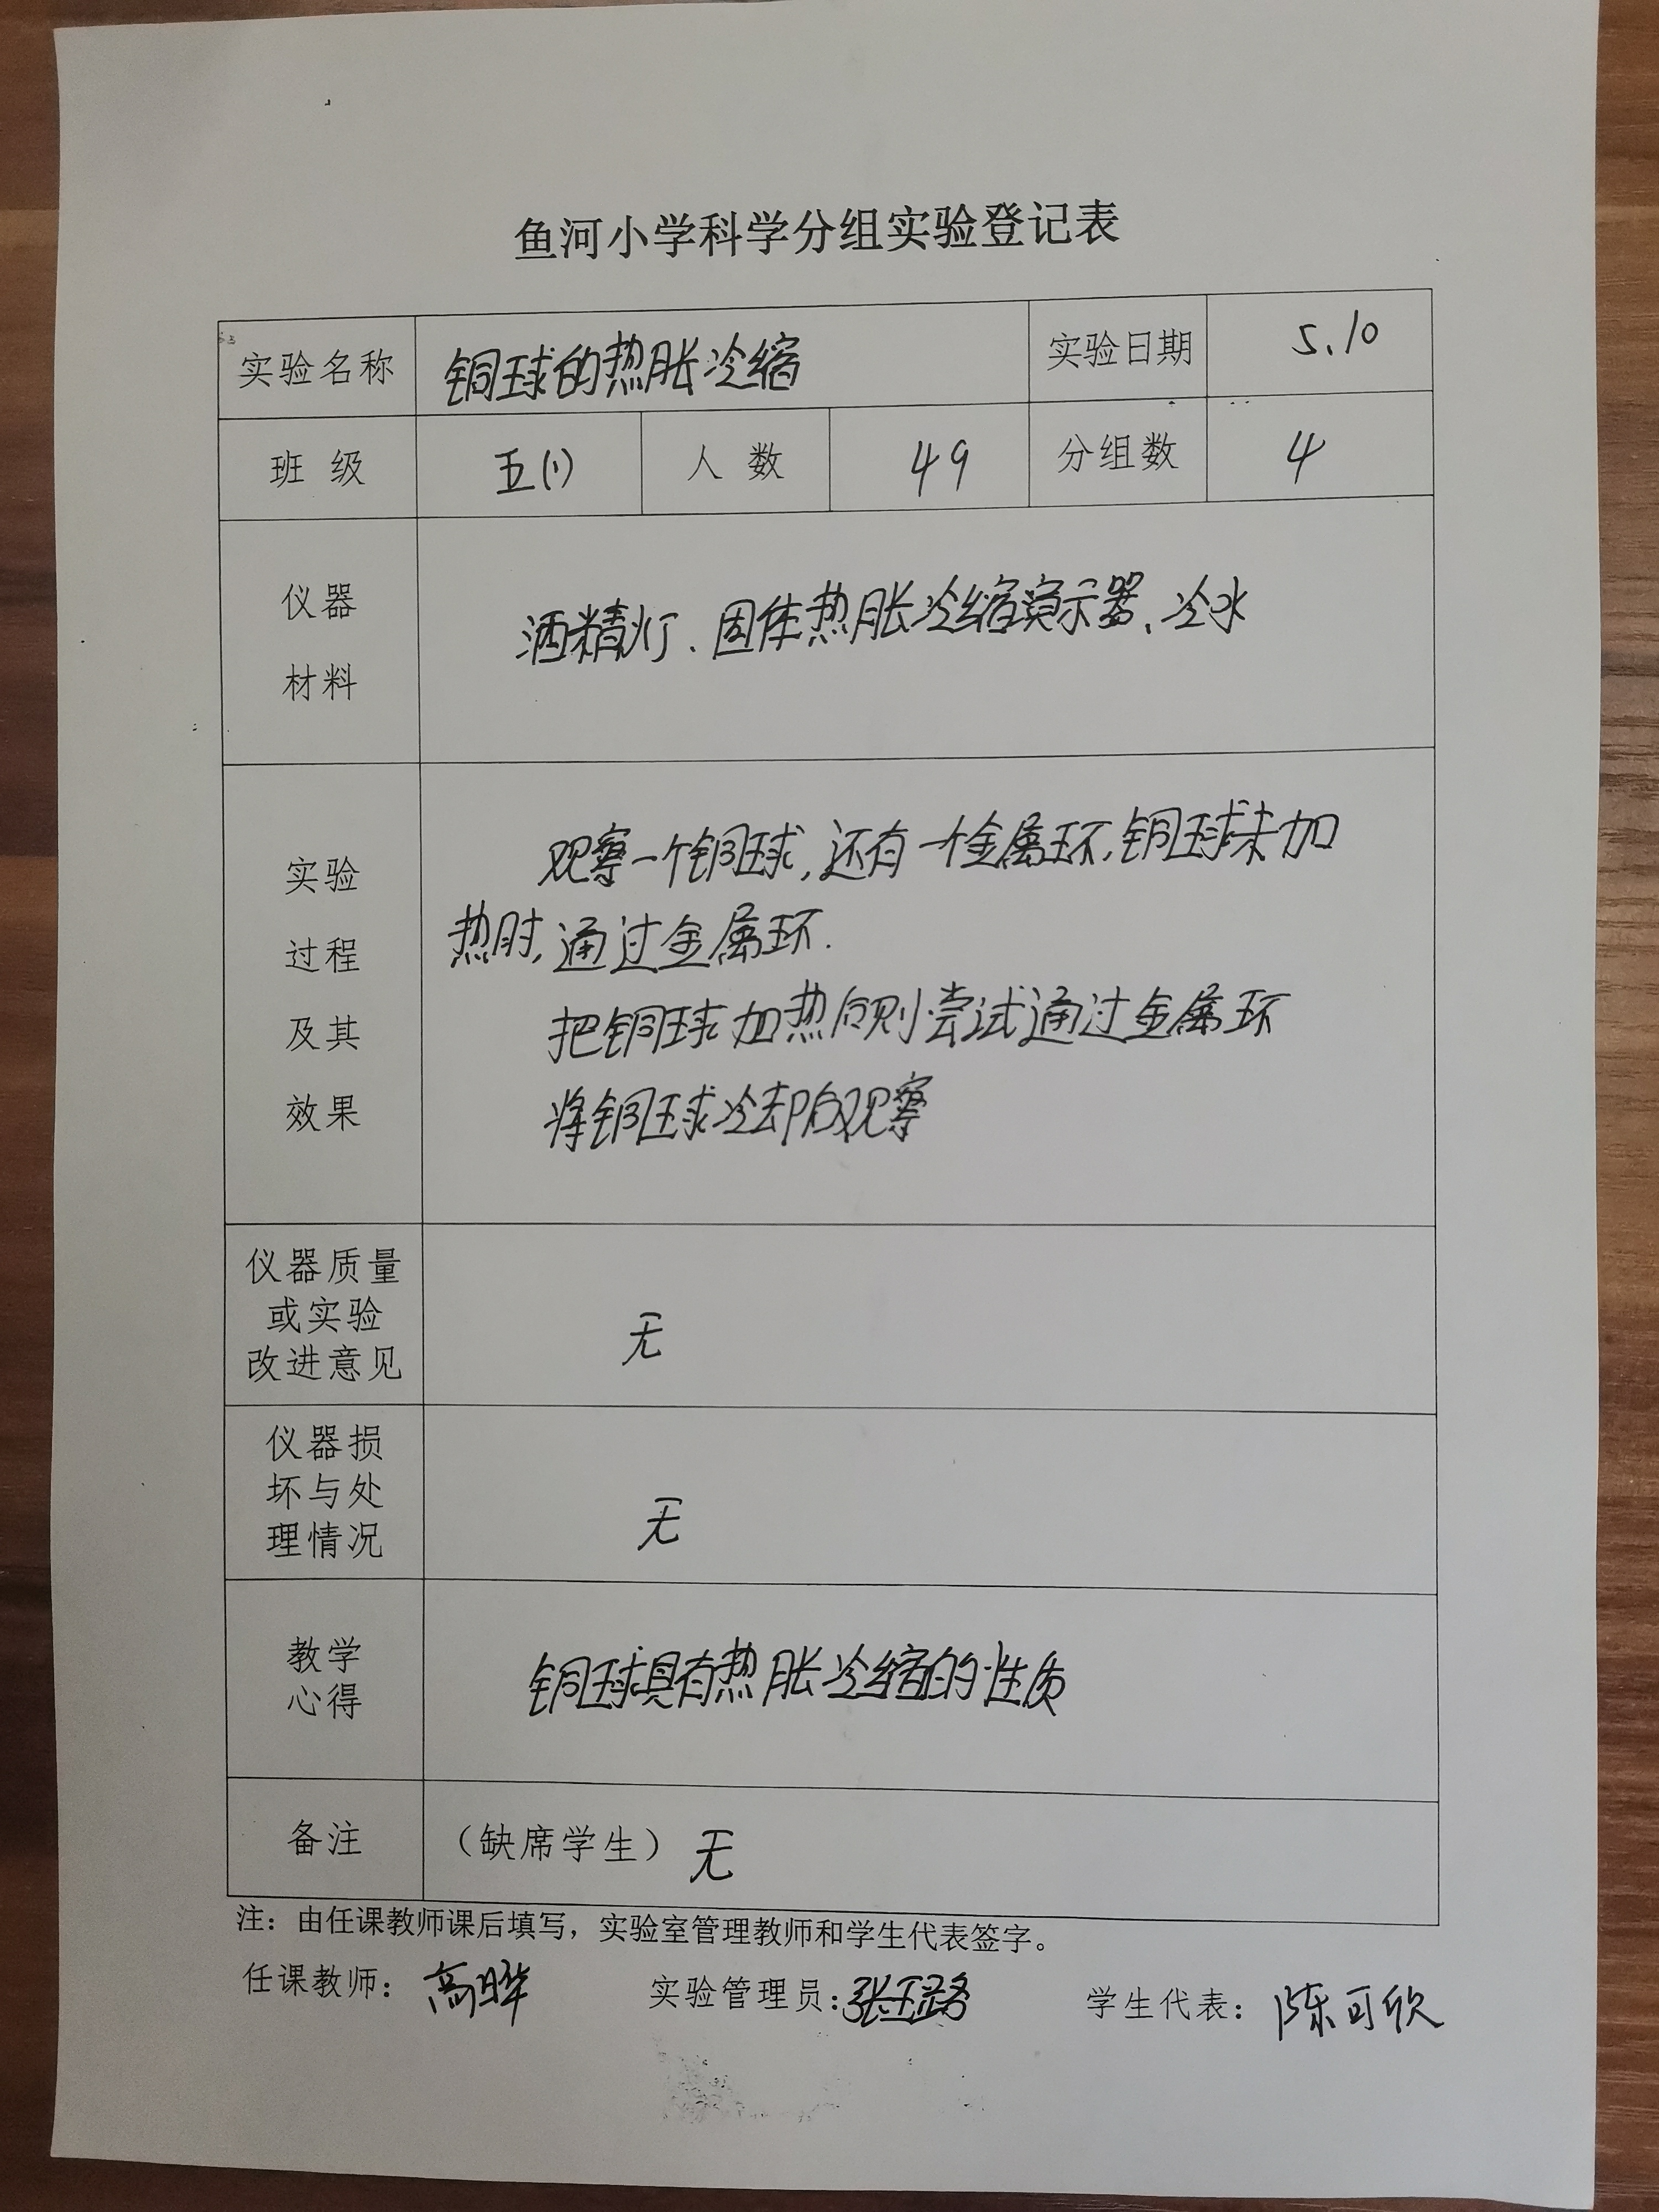 鱼河小学科学分组实验登记表
实验名称 铜球的热胀冷缩 实验日期 5.10
班 级 五(1) 人 数 49 分组数 4
仪器
材料
酒精灯、固体热胀冷缩演示器、冷水
实验
过程
及其
效果
观察一个铜球,还有一个金属环,铜球未加
热时,通过金属环.
把铜球加热后则尝试通过金属环
将铜球冷却后观察
仪器质量
或实验
改进意见
无
仪器损
坏与处
理情况
无
教学
心得
铜球具有热胀冷缩的性质
备注 (缺席学生) 无
注：由任课教师课后填写，实验室管理教师和学生代表签字。
任课教师：高晔 实验管理员：张玉路 学生代表：陈可欣